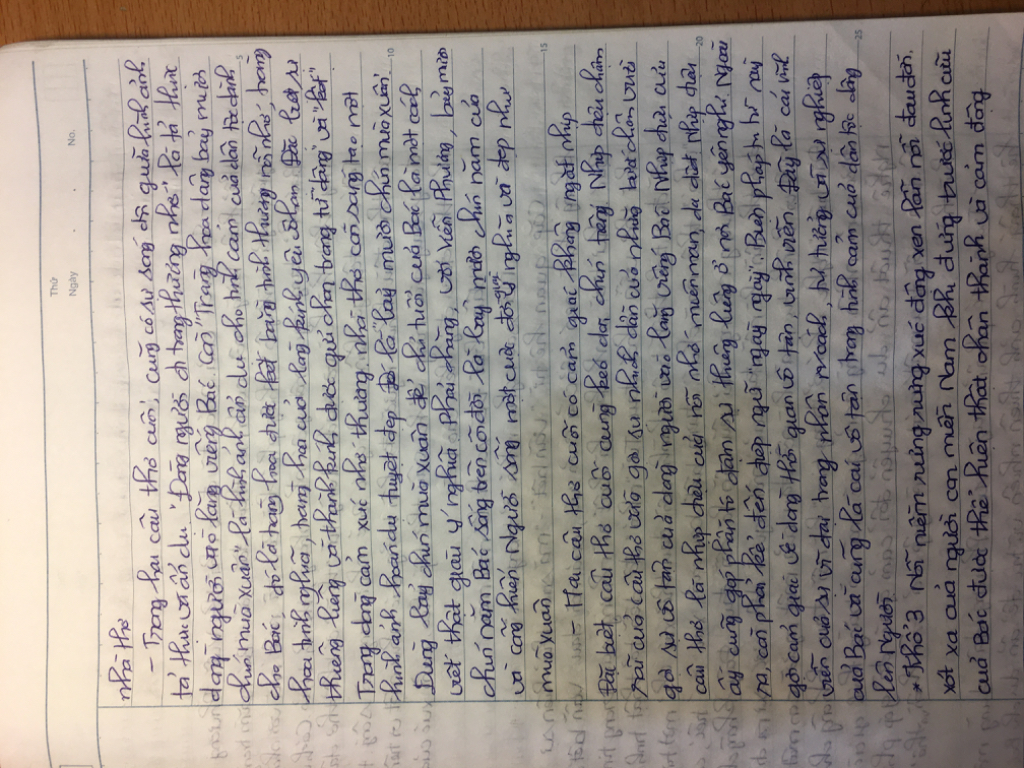 Thứ
Ngày
No.
nhà thơ
- Trong hai câu thơ cuối, cũng có sự song đôi giữa hình ảnh
tả thực và ẩn dụ. "Dòng người đi trong thương nhớ" là tả thực
dòng người vào lăng viếng Bác còn "Tràng hoa dâng bảy mươi
chín mùa xuân" là hình ảnh ẩn dụ cho tình cảm của dân tộc dành
cho Bác. đó là tràng hoa được kết bằng tình thương nỗi nhớ, tràng
hoa tình nghĩa, tràng hoa của lòng kính yêu Thêm đặc biệt sự
thiêng liêng và thành kính được gửi chọn trong từ "dâng" và "kết"
Trong dòng cảm xúc nhớ thương, nhà thơ còn sáng tạo một
hình ảnh hoán dụ tuyệt đẹp là "bảy mươi chín mùa xuân"
Dùng bảy chín mùa xuân để chỉ tuổi của Bác là một cách
viết thật giàu ý nghĩa Viễn Phương, bảy mươi
chín năm Bác sống trên cõi đời là bảy mươi chín năm
và cống hiến Người sống một cuộc đời ý nghĩa và đẹp như
mùa xuân
Hai câu thơ cuối có cảm giác không ngắt nhịp
đặc biệt câu thơ cuối cùng kéo dài, chín tiếng Nhịp điệu chầm
rãi của câu thơ vừa gợi sự nhích dần của những bước chân vừa
gợi sự vô tận của dòng người vào lăng viếng Bác Nhịp điệu của
câu thơ là nhịp điệu của nỗi nhớ miên man, da diết Nhịp điệu
ấy cũng góp phần tô đậm sự thiêng liêng ở nơi Bác yên nghỉ Ngoài
ra, còn phải kể đến điệp ngữ "ngày ngày" Biện pháp tu từ này
gợi cảm giác về dòng thời gian vô tận, vĩnh viễn Đây là cái vĩnh
viễn của sự vĩ đại trong phẩm cách, tư tưởng và sự nghiệp
của Bác và cũng là cái vô tận trong tình cảm của dân tộc dâng
lên Người
* Khổ 3 Nỗi niềm rưng rưng xúc động xen lẫn nỗi đau đớn.
xót xa của người con miền Nam khi đứng trước linh cữu
của Bác được thể hiện thật chân thành và cảm động
5
10
15
20
25